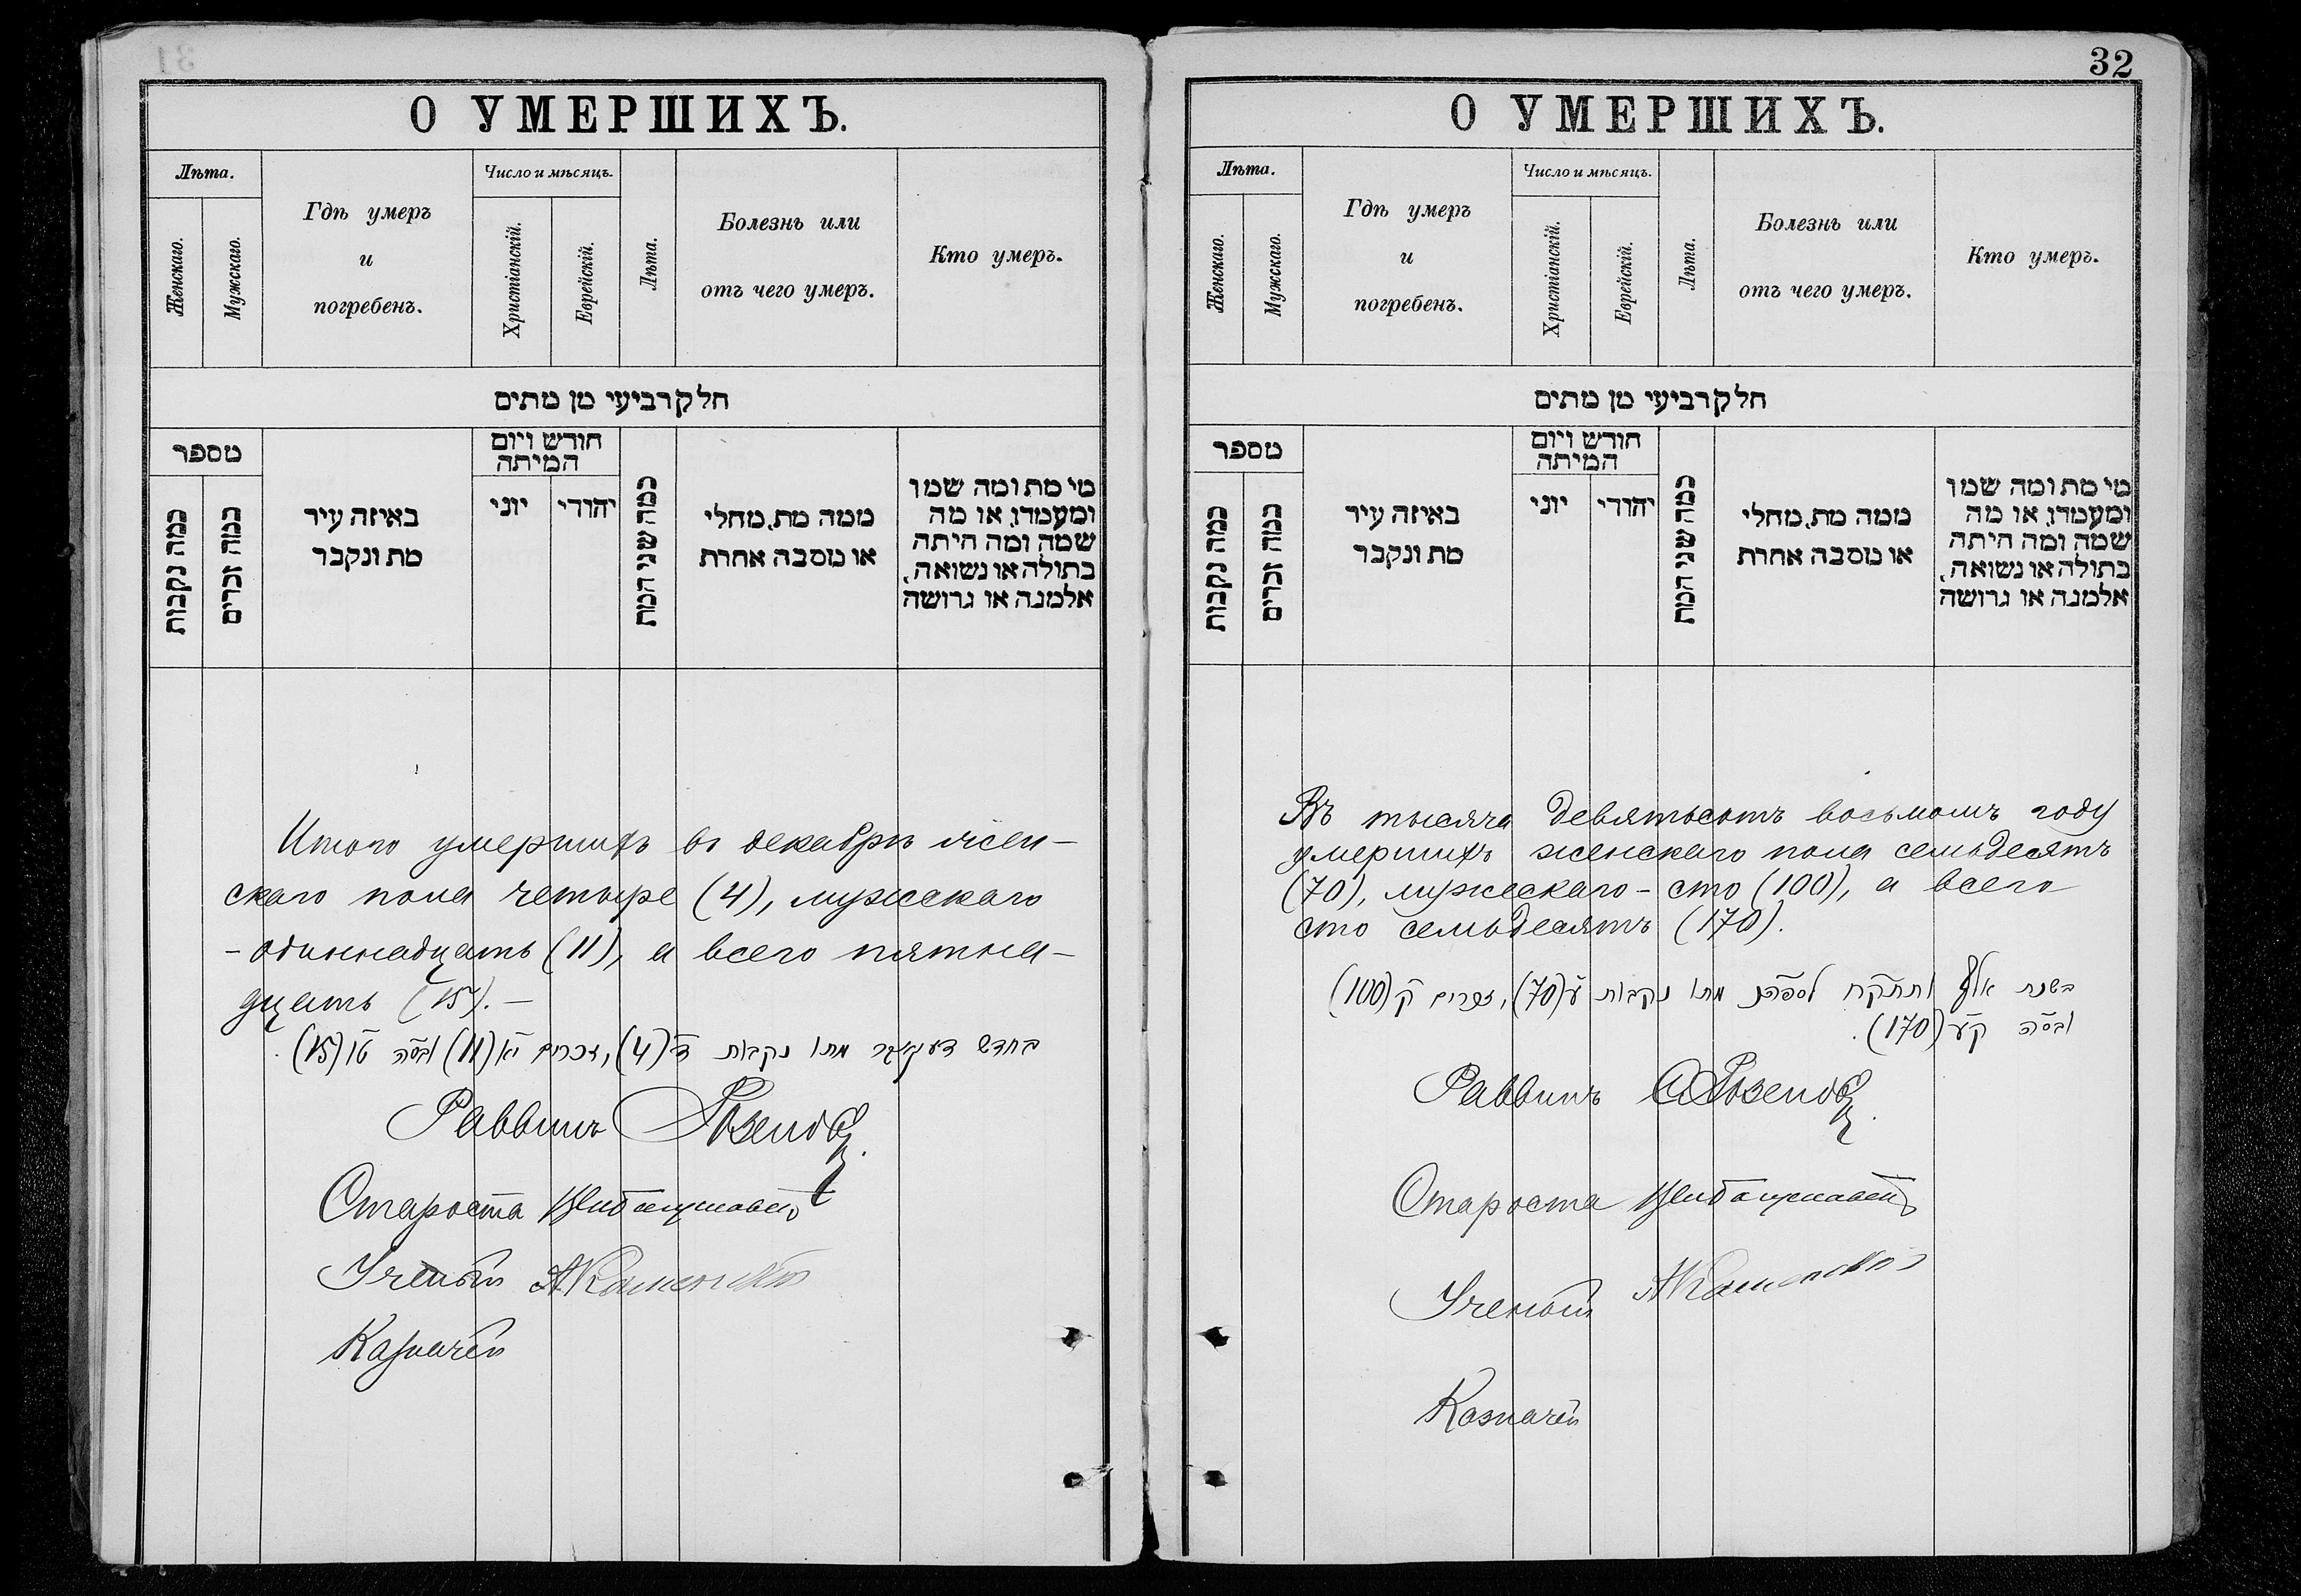 31
О УМЕРШИХЪ.
Лѣта.
Женскаго.
Мужскаго.
Гдѣ умеръ
и
погребенъ.
Число и мѣсяцъ.
Христіанскій.
Еврейскій.
Лѣта.
Болезнь или
отъ чего умеръ.
Кто умеръ.
חלק רביעי מן מתים
מספר
כמה נקבות
כמה זכרים
באיזה עיר
מת ונקבר
חודש ויום
המיתה
יוני
יהודי
כמה שני המת
ממה מת, מחלי
או מסבה אחרת
מי מת ומה שמו
ומעמדו, או מה
שמה ומה היתה
בתולה או נשואה,
אלמנה או גרושה
Итого умершихъ въ декабрѣ жен-
скаго пола четыре (4), мужескаго
- одиннадцать (11), а всего пятна-
дцать (15). -
בחדש דעקאבר מתו נקבות ד' (4), זכרים יא (11) ובס"ה טו (15).
Раввинъ
Староста
Ученый
Казначей
32
О УМЕРШИХЪ.
Лѣта.
Женскаго.
Мужскаго.
Гдѣ умеръ
и
погребенъ.
Число и мѣсяцъ.
Христіанскій.
Еврейскій.
Лѣта.
Болезнь или
отъ чего умеръ.
Кто умеръ.
חלק רביעי מן מתים
מספר
כמה נקבות
כמה זכרים
באיזה עיר
מת ונקבר
חודש ויום
המיתה
יוני
יהודי
כמה שני המת
ממה מת, מחלי
או מסבה אחרת
מי מת ומה שמו
ומעמדו, או מה
שמה ומה היתה
בתולה או נשואה,
אלמנה או גרושה
Въ тысяча девятьсотъ восьмомъ году
умершихъ женскаго пола семьдесятъ
(70), мужескаго - сто (100), а всего
сто семьдесятъ (170).
בשנת אלף ותתקח מתו נקבות ע' (70), זכרים ק' (100)
ובס"ה ק"ע (170).
Раввинъ
Староста
Ученый
Казначей